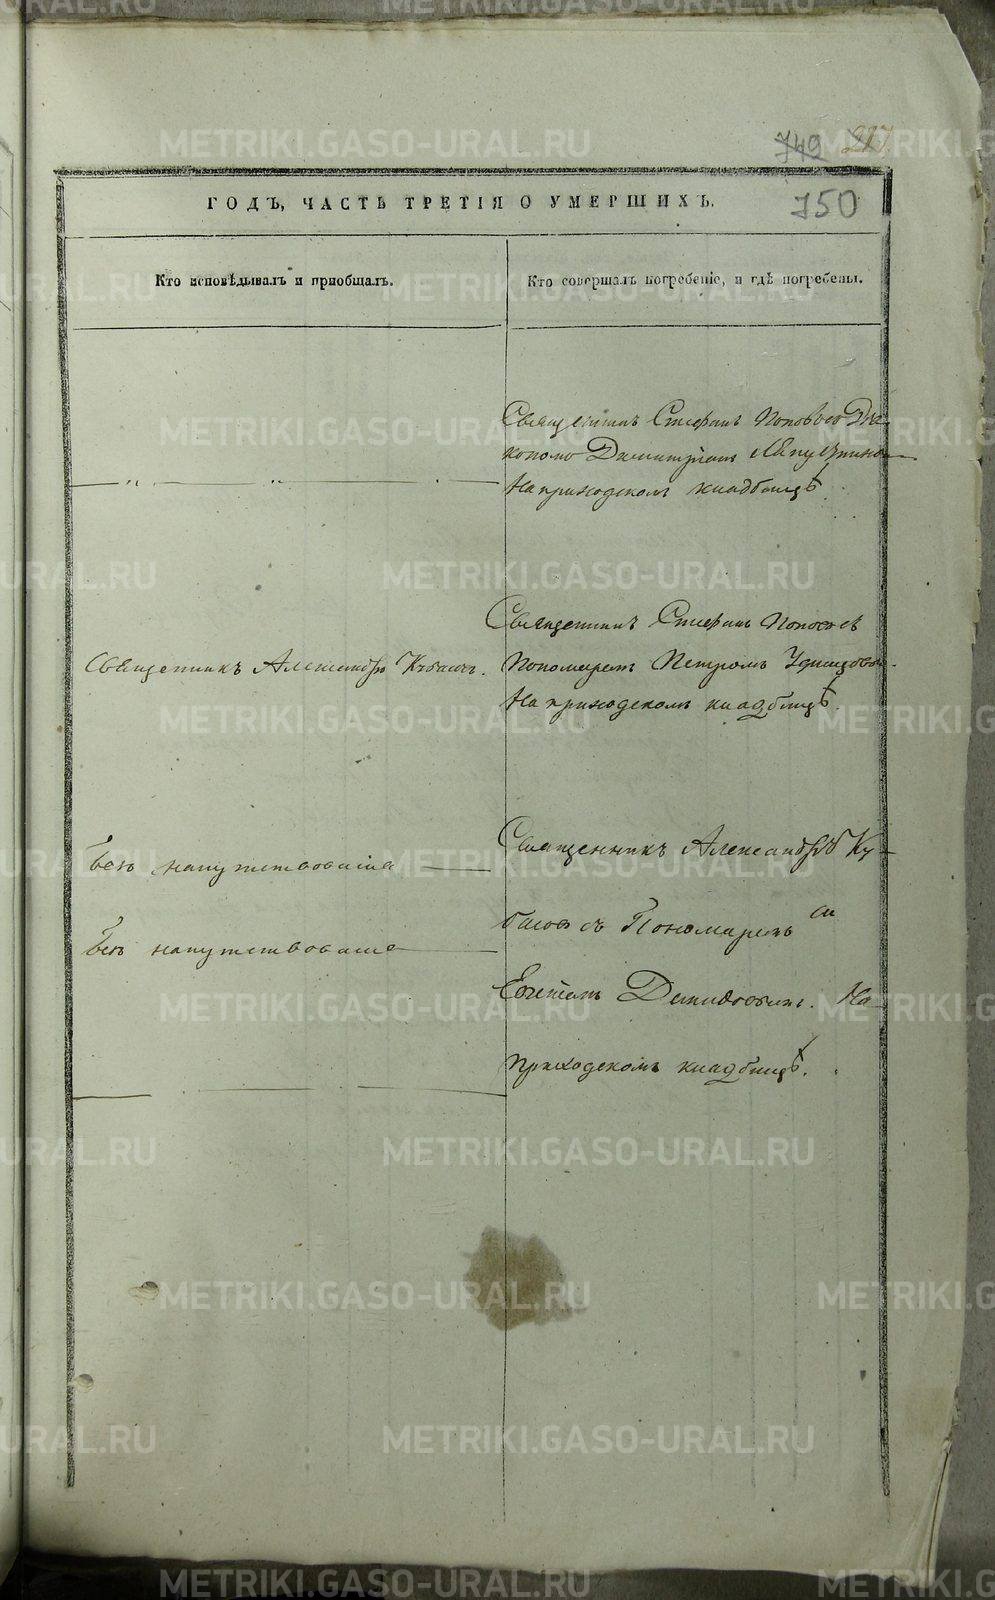 749 217
750
ГОДЪ, ЧАСТЬ ТРЕТІЯ О УМЕРШИХЪ.
Кто исповѣдывалъ и пріобщалъ.
Кто совершалъ погребеніе, и гдѣ погребены.
Священникъ Стефанъ Поповъ съ Діа-
кономъ Димитріемъ
На приходскомъ кладбищѣ.
Священникъ Александръ Кубасовъ.
Священникъ Стефанъ Поповъ съ
Пономаремъ Петромъ
На приходскомъ кладбищѣ.
Безъ напутствованія
Безъ напутствованія
Священникъ Александръ Ку-
басовъ съ Пономаремъ
Демидовымъ. На
Приходскомъ кладбищѣ.
METRIKI.GASO-URAL.RU